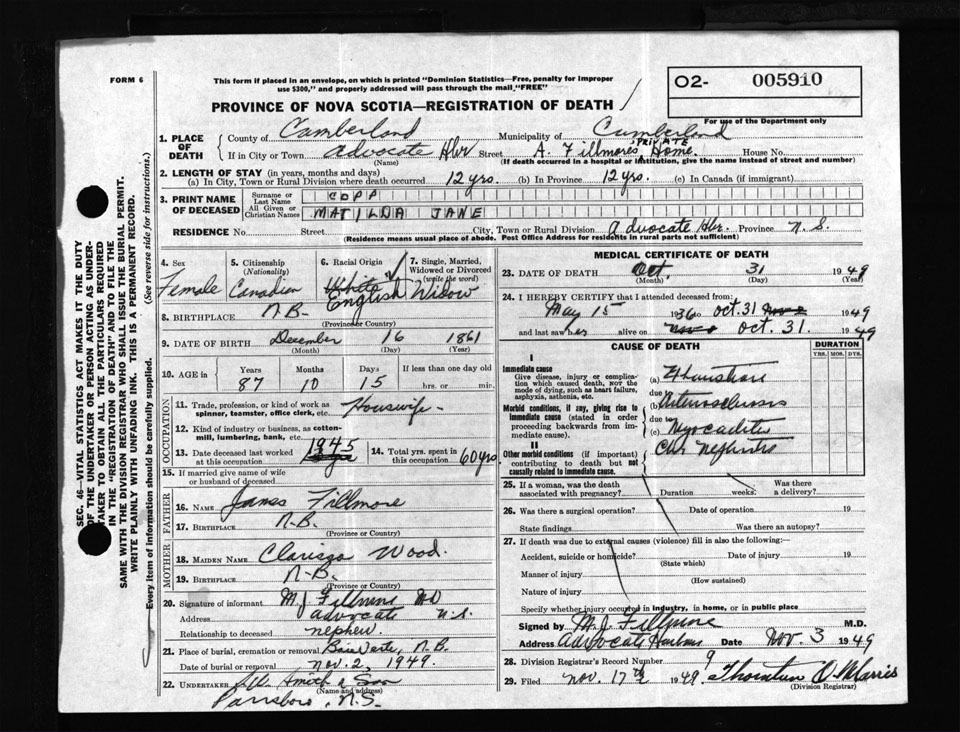 FORM 6
This form if placed in an envelope, on which is printed "Dominion Statistics—Free, penalty for improper
use $300," and properly addressed will pass through the mail "FREE"
02- 005910
For use of the Department only
PROVINCE OF NOVA SCOTIA—REGISTRATION OF DEATH
1. PLACE OF DEATH
County of Cumberland Municipality of Cumberland
If in City or Town Advocate Hbr Street A. Fillmores PRIVATE Home. House No.
(Name) (If death occurred in a hospital or institution, give the name instead of street and number)
2. LENGTH OF STAY (in years, months and days)
(a) In City, Town or Rural Division where death occurred 12 yrs. (b) In Province 12 yrs. (c) In Canada (if immigrant)
3. PRINT NAME OF DECEASED
Surname or Last Name COPP
All Given or Christian Names MATILDA JANE
RESIDENCE No. Street City, Town or Rural Division Advocate Hbr. Province N.S.
(Residence means usual place of abode. Post Office Address for residents in rural parts not sufficient)
4. Sex
Female
5. Citizenship
(Nationality)
Canadian
6. Racial Origin
White
English
7. Single, Married, Widowed or Divorced
(write the word)
Widow
8. BIRTHPLACE N.B.
(Province or Country)
9. DATE OF BIRTH December 16 1861
(Month) (Day) (Year)
10. AGE in Years Months Days If less than one day old
87 10 15 hrs. or min.
OCCUPATION
11. Trade, profession, or kind of work as
spinner, teamster, office clerk, etc. Housewife
12. Kind of industry or business, as cotton-
mill, lumbering, bank, etc.
13. Date deceased last worked
at this occupation 1945
14. Total yrs. spent in
this occupation 60 yrs
15. If married give name of wife
or husband of deceased
FATHER
16. NAME James Fillmore
17. BIRTHPLACE N.B.
(Province or Country)
MOTHER
18. MAIDEN NAME Clarissa Wood.
19. BIRTHPLACE N.B.
(Province or Country)
20. Signature of informant M J Fillmore MD
Address Advocate N.S.
Relationship to deceased nephew.
21. Place of burial, cremation or removal Baie Verte, N.B.
Date of burial or removal Nov. 2, 1949.
22. UNDERTAKER Smith & Son
(Name and address)
Parrsboro, N.S.
MEDICAL CERTIFICATE OF DEATH
23. DATE OF DEATH Oct. 31 1949
(Month) (Day) (Year)
24. I HEREBY CERTIFY that I attended deceased from:
May 15 1936 to Oct. 31 Nov 2 1949
and last saw her alive on Oct. 31. 1949
CAUSE OF DEATH
DURATION
YRS. MOS. DYS.
I
Immediate cause
Give disease, injury or complica-
tion which caused death, NOT the
mode of dying, such as heart failure,
asphyxia, asthenia, etc.
(a)
due to
Morbid conditions, if any, giving rise to
immediate cause (stated in order
proceeding backwards from im-
mediate cause).
(b) Arteriosclerosis
due to
(c) Myocarditis
II
Other morbid conditions (if important)
contributing to death but not
causally related to immediate cause.
Chr Nephritis
25. If a woman, was the death
associated with pregnancy? Duration weeks: Was there
a delivery?
26. Was there a surgical operation? Date of operation 19
State findings Was there an autopsy?
27. If death was due to external causes (violence) fill in also the following:
Accident, suicide or homicide? Date of injury 19
(State which)
Manner of injury
(How sustained)
Nature of injury
Specify whether injury occurred in industry, in home, or in public place
Signed by M. J. Fillmore M.D.
Address Advocate Harbour Date Nov. 3 1949
28. Division Registrar's Record Number 9
29. Filed Nov. 17th 1949. Thornton O. Morris
(Division Registrar)
SEC. 46—VITAL STATISTICS ACT MAKES IT THE DUTY
OF THE UNDERTAKER OR PERSON ACTING AS UNDER-
TAKER TO OBTAIN ALL THE PARTICULARS REQUIRED
IN THE "REGISTRATION OF DEATH" AND TO FILE THE
SAME WITH THE DIVISION REGISTRAR WHO SHALL ISSUE THE BURIAL PERMIT.
WRITE PLAINLY WITH UNFADING INK. THIS IS A PERMANENT RECORD.
Every item of information should be carefully supplied. (See reverse side for instructions.)